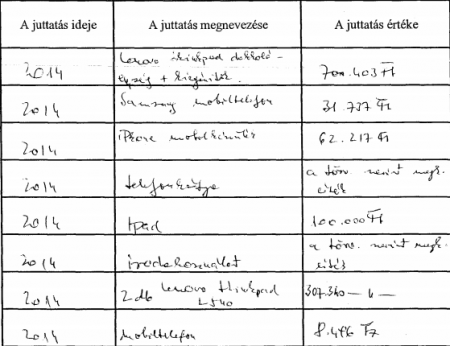 A juttatás ideje A juttatás megnevezése A juttatás értéke
2014 Lenovo thinkpad dokkoló-
egység + kiegészítők. 700.403 Ft
2014 Samsung mobiltelefon 31.737 Ft
2014 iPhone mobilkészülék 62.217 Ft
2014 telefonkártya a törv. szerint
2014 Ipad 100.000 Ft
2014 irodahasználat a törv. szerint
2014 2 db Lenovo thinkpad
L540 307.340
2014 mobiltelefon 8.486 Ft